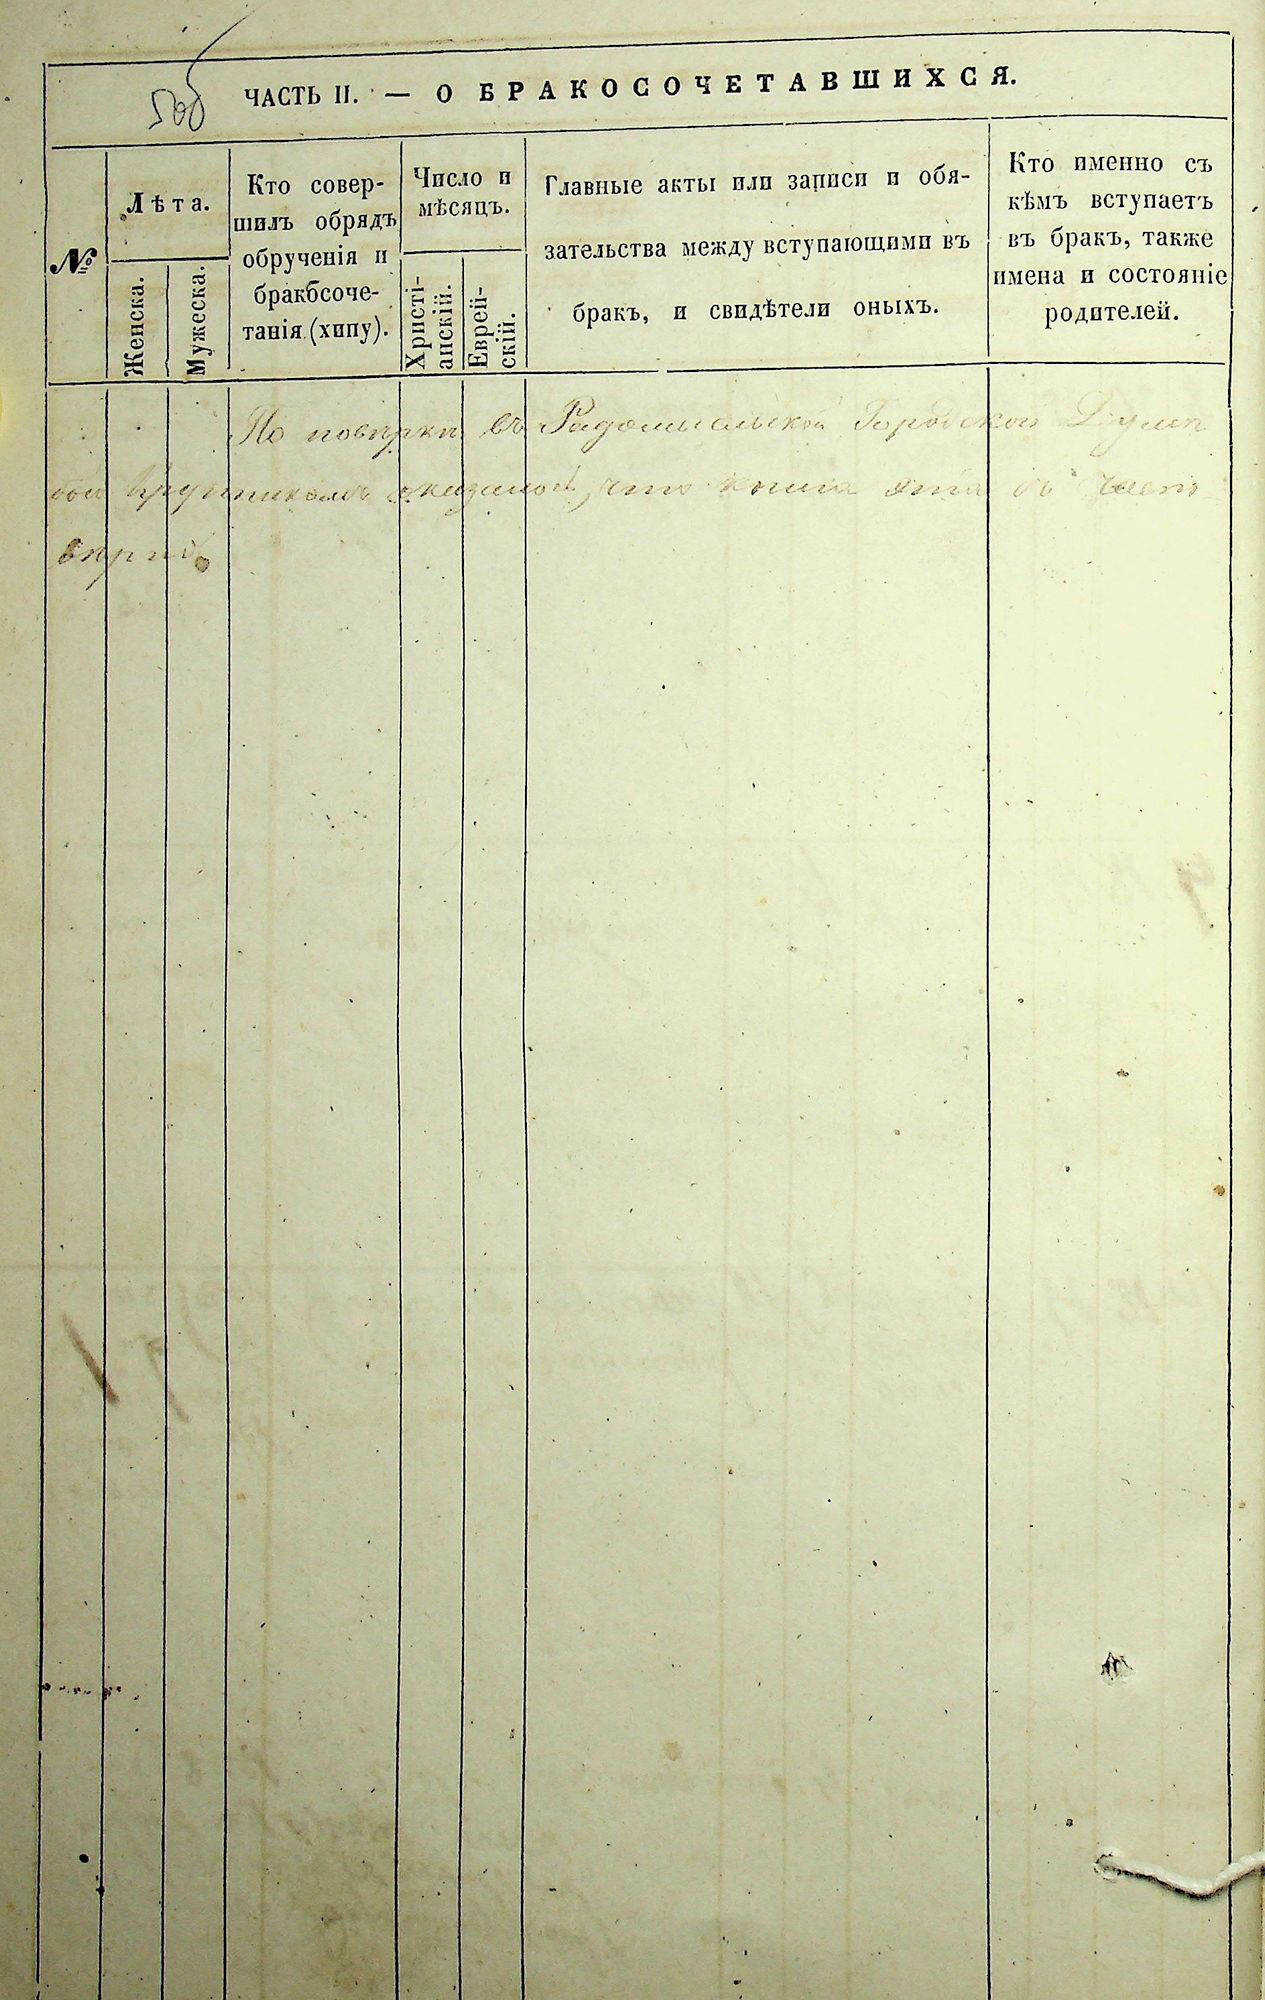 505
ЧАСТЬ II. — О БРАКОСОЧЕТАВШИХСЯ.
№
Лѣта.
Женска.
Мужеска.
Кто совер-
шилъ обрядъ
обрученія и
бракосоче-
танія (хипу).
Число и
мѣсяцъ.
Христі-
анскій.
Еврей-
скій.
Главные акты или записи и обя-
зательства между вступающими въ
бракъ, и свидѣтели оныхъ.
Кто именно съ
кѣмъ вступаетъ
въ бракъ, также
имена и состояніе
родителей.
По повѣрки въ Радомысльской Городской Думѣ
оказалось, что книга эта въ
вѣрна